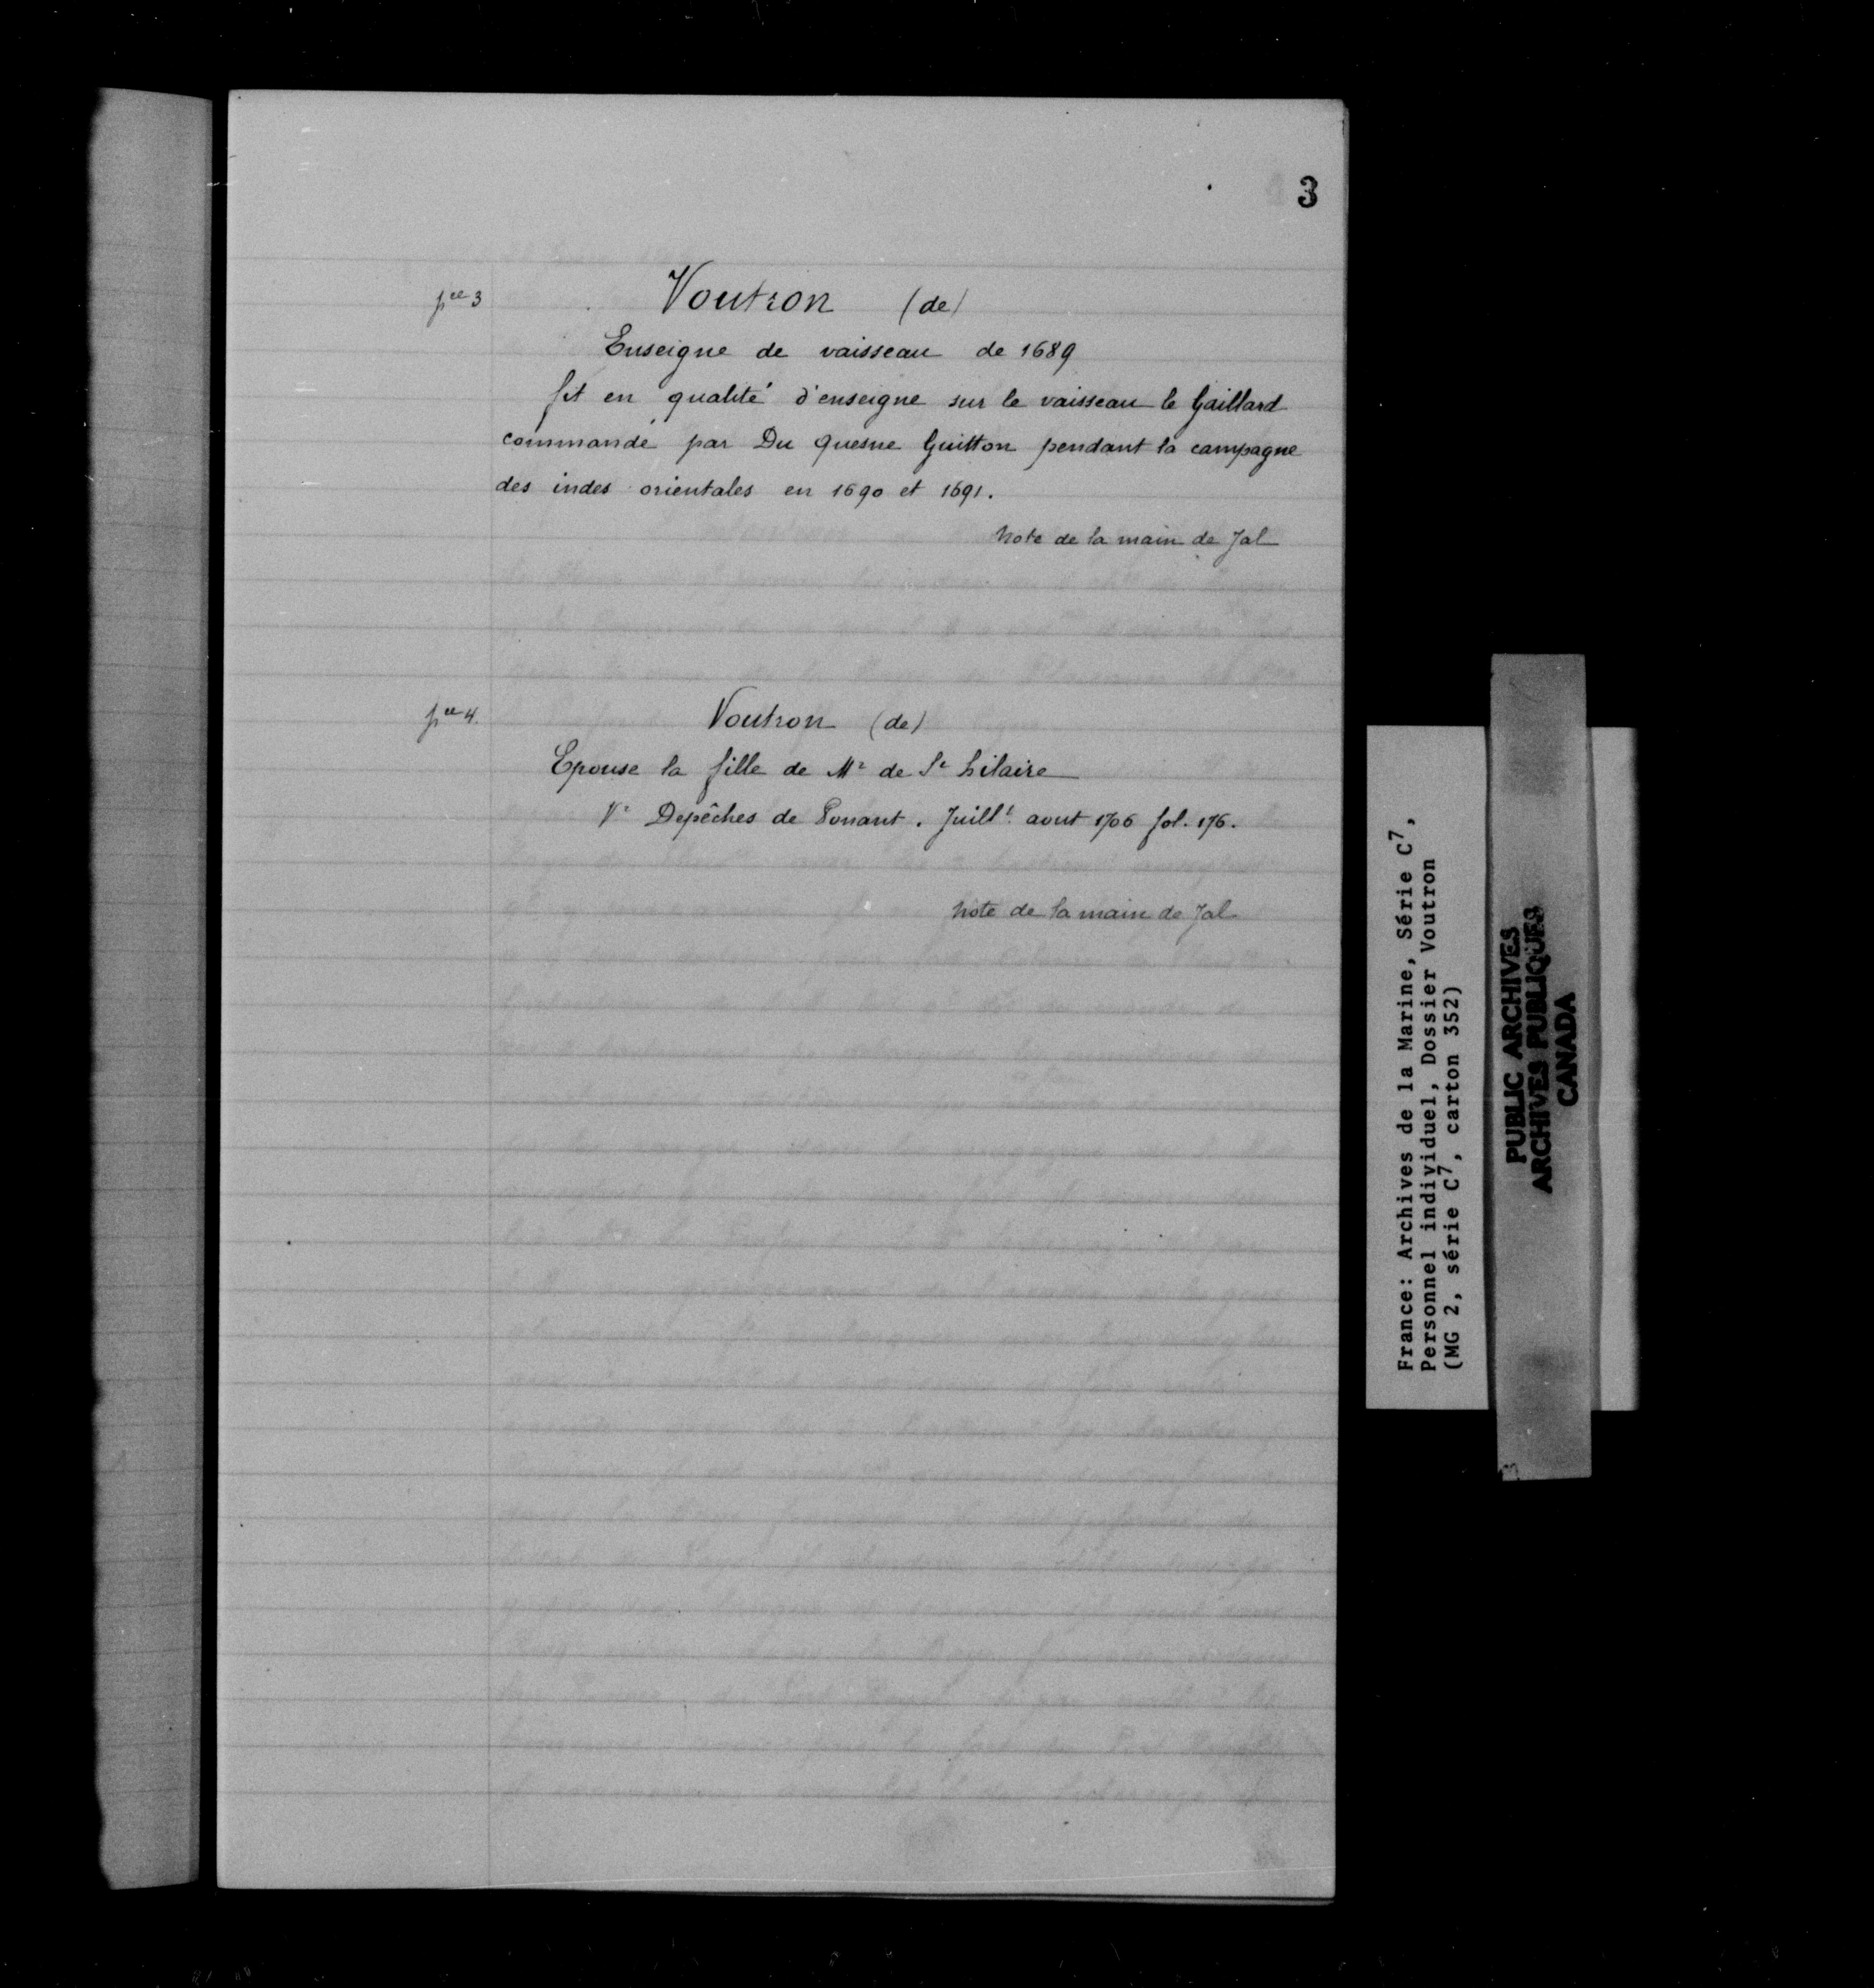 3
pce 3
Voutron (de)
Enseigne de vaisseau de 1689
fit en qualité d'enseigne sur le vaisseau le Gaillard
commandé par Du Quesne Guitton pendant la campagne
des indes orientales en 1690 et 1691.
Note de la main de Jal
pce 4.
Voutron (de)
Epouse la fille de Mr de St hilaire
Vr Depêches de Ponant. Juillt aout 1706 fol. 176.
Note de la main de Jal
France: Archives de la Marine, Série C7,
Personnel individuel, Dossier Voutron
(MG 2, série C7, carton 352)
PUBLIC ARCHIVES
ARCHIVES PUBLIQUES
CANADA